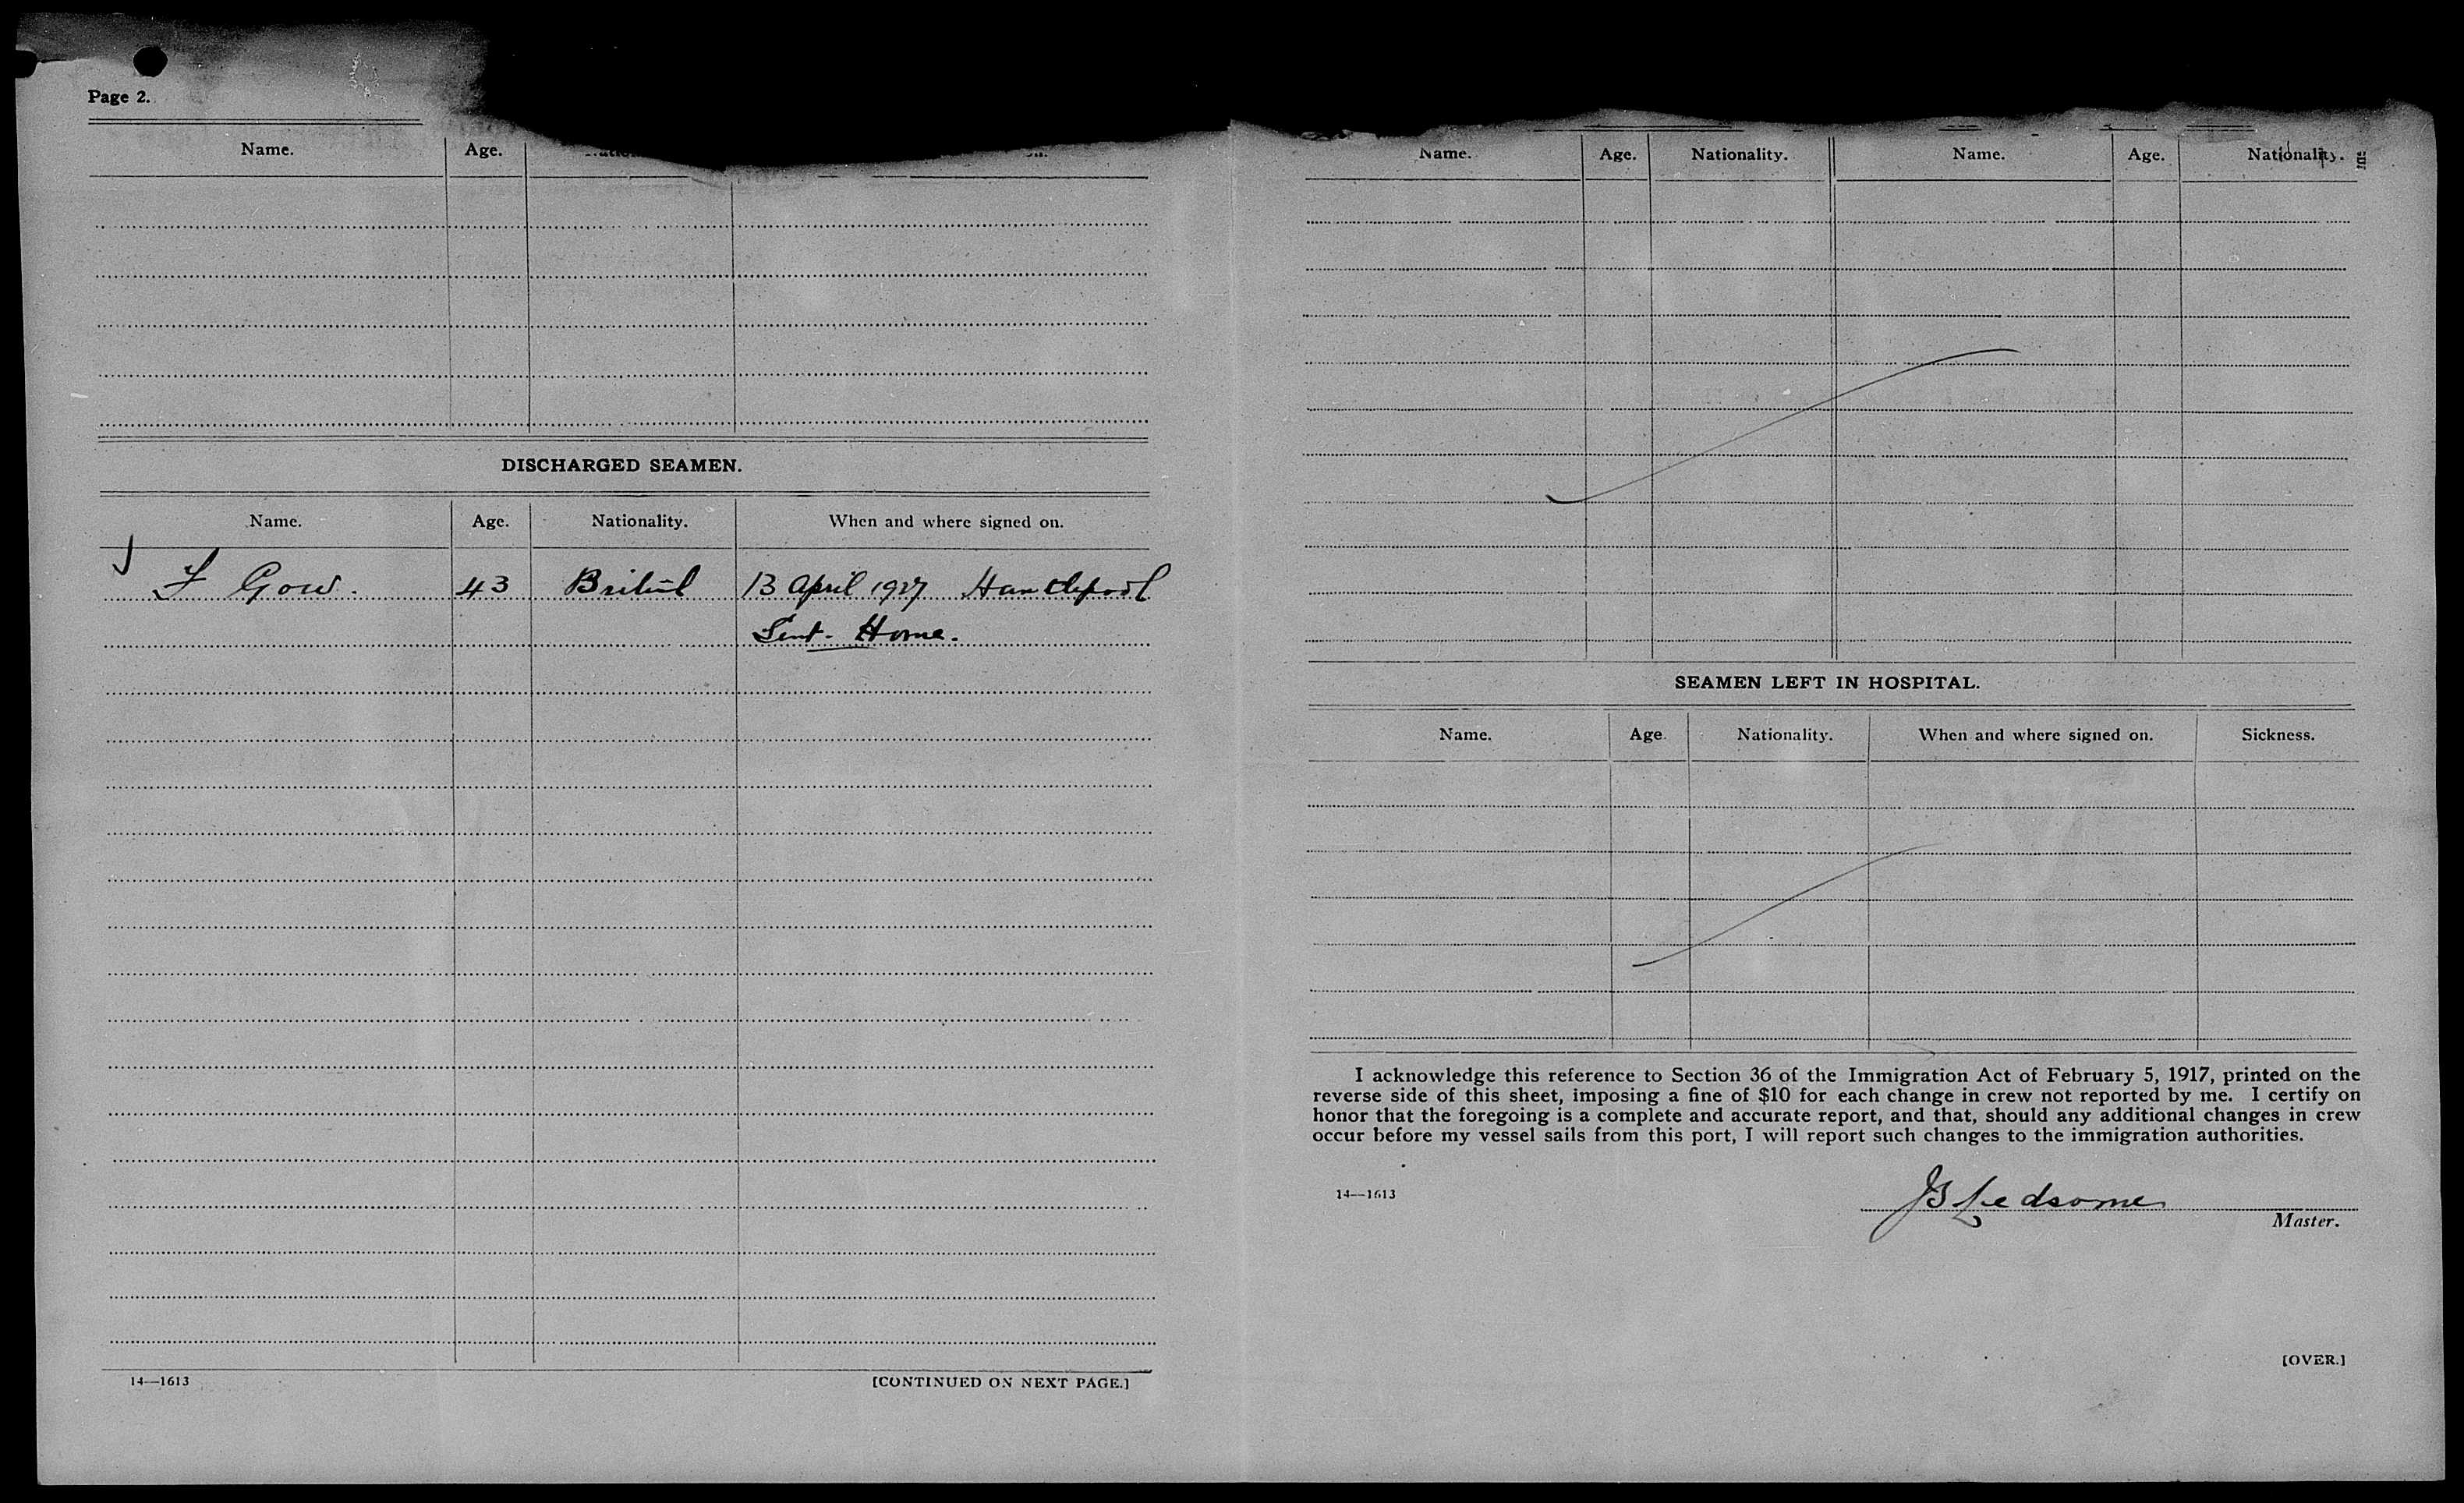 Page 2.
Name. Age.
DISCHARGED SEAMEN.
Name. Age. Nationality. When and where signed on.
F Gow. 43 British 13 April 1927 Hartlepool
Sent Home.
14—1613 [CONTINUED ON NEXT PAGE.]
Name. Age. Nationality. Name. Age. Nationality.
SEAMEN LEFT IN HOSPITAL.
Name. Age. Nationality. When and where signed on. Sickness.
I acknowledge this reference to Section 36 of the Immigration Act of February 5, 1917, printed on the
reverse side of this sheet, imposing a fine of $10 for each change in crew not reported by me. I certify on
honor that the foregoing is a complete and accurate report, and that, should any additional changes in crew
occur before my vessel sails from this port, I will report such changes to the immigration authorities.
14—1613
JB Ledsome
Master.
[OVER.]